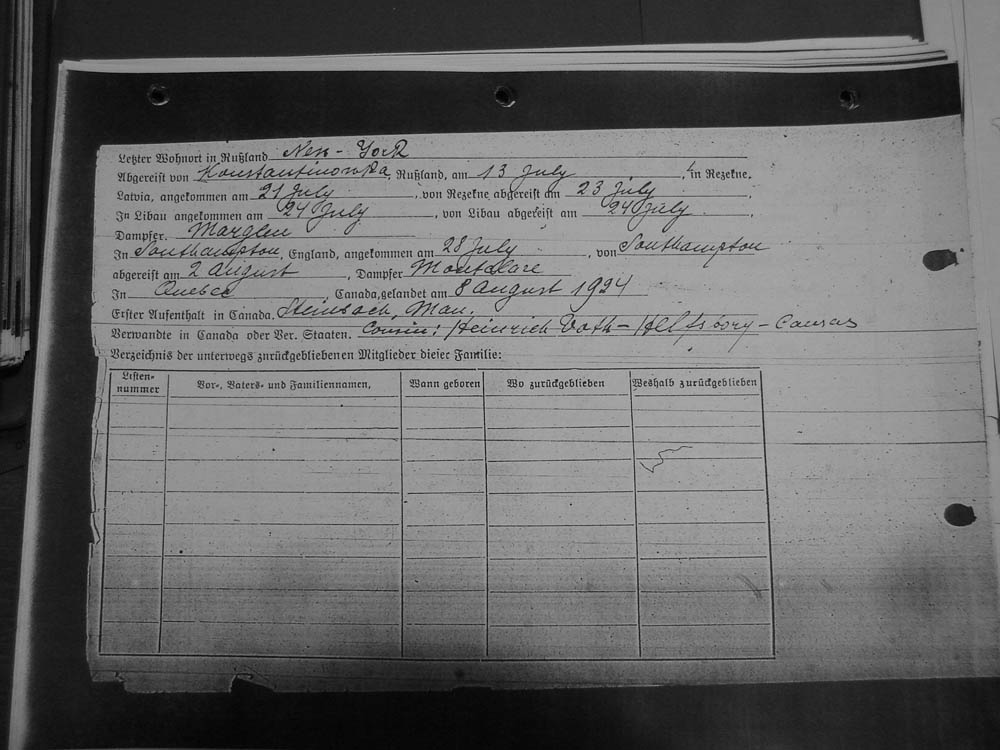 Letzter Wohnort in Rußland New-York
Abgereist von Konstantinowka, Rußland, am 13 July, in Rezekne,
Latvia, angekommen am 21 July, von Rezekne abgereist am 23 July
In Libau angekommen am 24 July, von Libau abgereist am 24 July.
Dampfer. Marglen
In Southampton, England, angekommen am 28 July, von Southampton
abgereist am 2 August, Dampfer Montclare
In Quebec, Canada, gelandet am 8 August 1924
Erster Aufenthalt in Canada, Steinbach, Man.
Verwandte in Canada oder Ver. Staaten. Cousin: Heinrich Voth - - Cansas
Verzeichnis der unterwegs zurückgebliebenen Mitglieder dieser Familie:
Listen-nummer Vor-, Vaters- und Familiennamen, Wann geboren Wo zurückgeblieben Weshalb zurückgeblieben